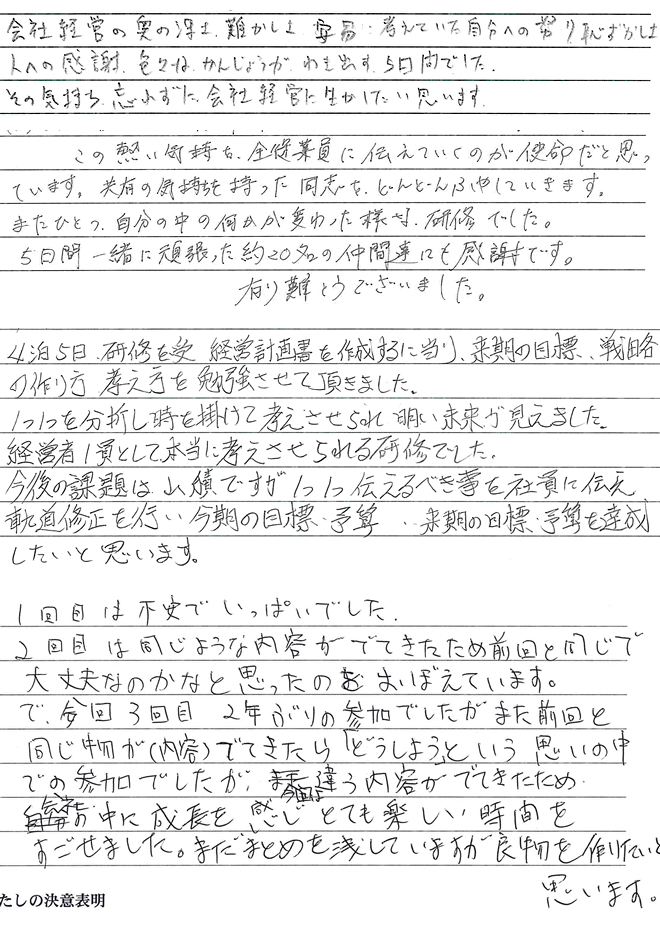 会社経営の奥の深さ、難かしさ 安易に考えていた自分への怒り 恥ずかしさ
人への感謝、色々な、かんじょうが、わき出す、5日間でした。
その気持ち、忘れずに、会社経営に生かしたい思います。
この熱い気持を、全従業員に伝えていくのが使命だと思っ
ています。共有の気持を持った同志を、どんどんふやしていきます。
またひとつ、自分の中の何かが変わった様な、研修でした。
5日間一緒に頑張った約20名の仲間達にも感謝です。
有り難とうございました。
4泊5日、研修を受 経営計画書を作成するに当り、来期の目標、戦略
の作り方 考え方を勉強させて頂きました。
1つ1つを分析し時を掛けて考えさせられ 明い未来が見えました。
経営者1員として本当に考えさせられる研修でした。
今後の課題は山積ですが1つ1つ伝えるべき事を社員に伝え
軌道修正を行い今期の目標・予算、来期の目標・予算を達成
したいと思います。
1回目は不安でいっぱいでした。
2回目は同じような内容がでてきたため前回と同じで
大丈夫なのかなと思ったのをおぼえています。
で、今回3回目 2年ぶりの参加でしたがまた前回と
同じ物が(内容)でてきたら「どうしよう」という思いの中
での参加でしたが、今回は違う内容がでてきたため
中に成長を感じとても楽しい時間を
すごせました。まだまとめを残していますが良物を作りたいと
思います。
たしの決意表明